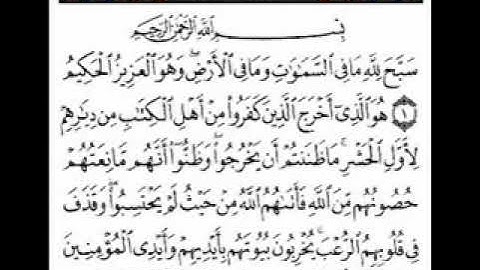 بِسْمِ اللَّهِ الرَّحْمَٰنِ الرَّحِيمِ
سَبَّحَ لِلَّهِ مَا فِي السَّمَٰوَٰتِ وَمَا فِي الْأَرْضِ ۖ وَهُوَ الْعَزِيزُ الْحَكِيمُ
۝١ هُوَ الَّذِي أَخْرَجَ الَّذِينَ كَفَرُوا مِنْ أَهْلِ الْكِتَٰبِ مِن دِيَٰرِهِمْ
لِأَوَّلِ الْحَشْرِ ۚ مَا ظَنَنتُمْ أَن يَخْرُجُوا ۖ وَظَنُّوا أَنَّهُم مَّانِعَتُهُمْ
حُصُونُهُم مِّنَ اللَّهِ فَأَتَىٰهُمُ اللَّهُ مِنْ حَيْثُ لَمْ يَحْتَسِبُوا ۖ وَقَذَفَ
فِي قُلُوبِهِمُ الرُّعْبَ ۚ يُخْرِبُونَ بُيُوتَهُم بِأَيْدِيهِمْ وَأَيْدِي الْمُؤْمِنِينَ